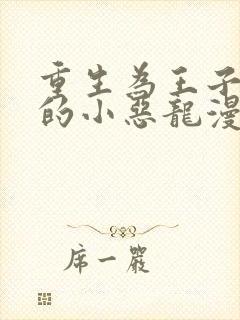 重生为王子
的小惡龍漫
席一嚴